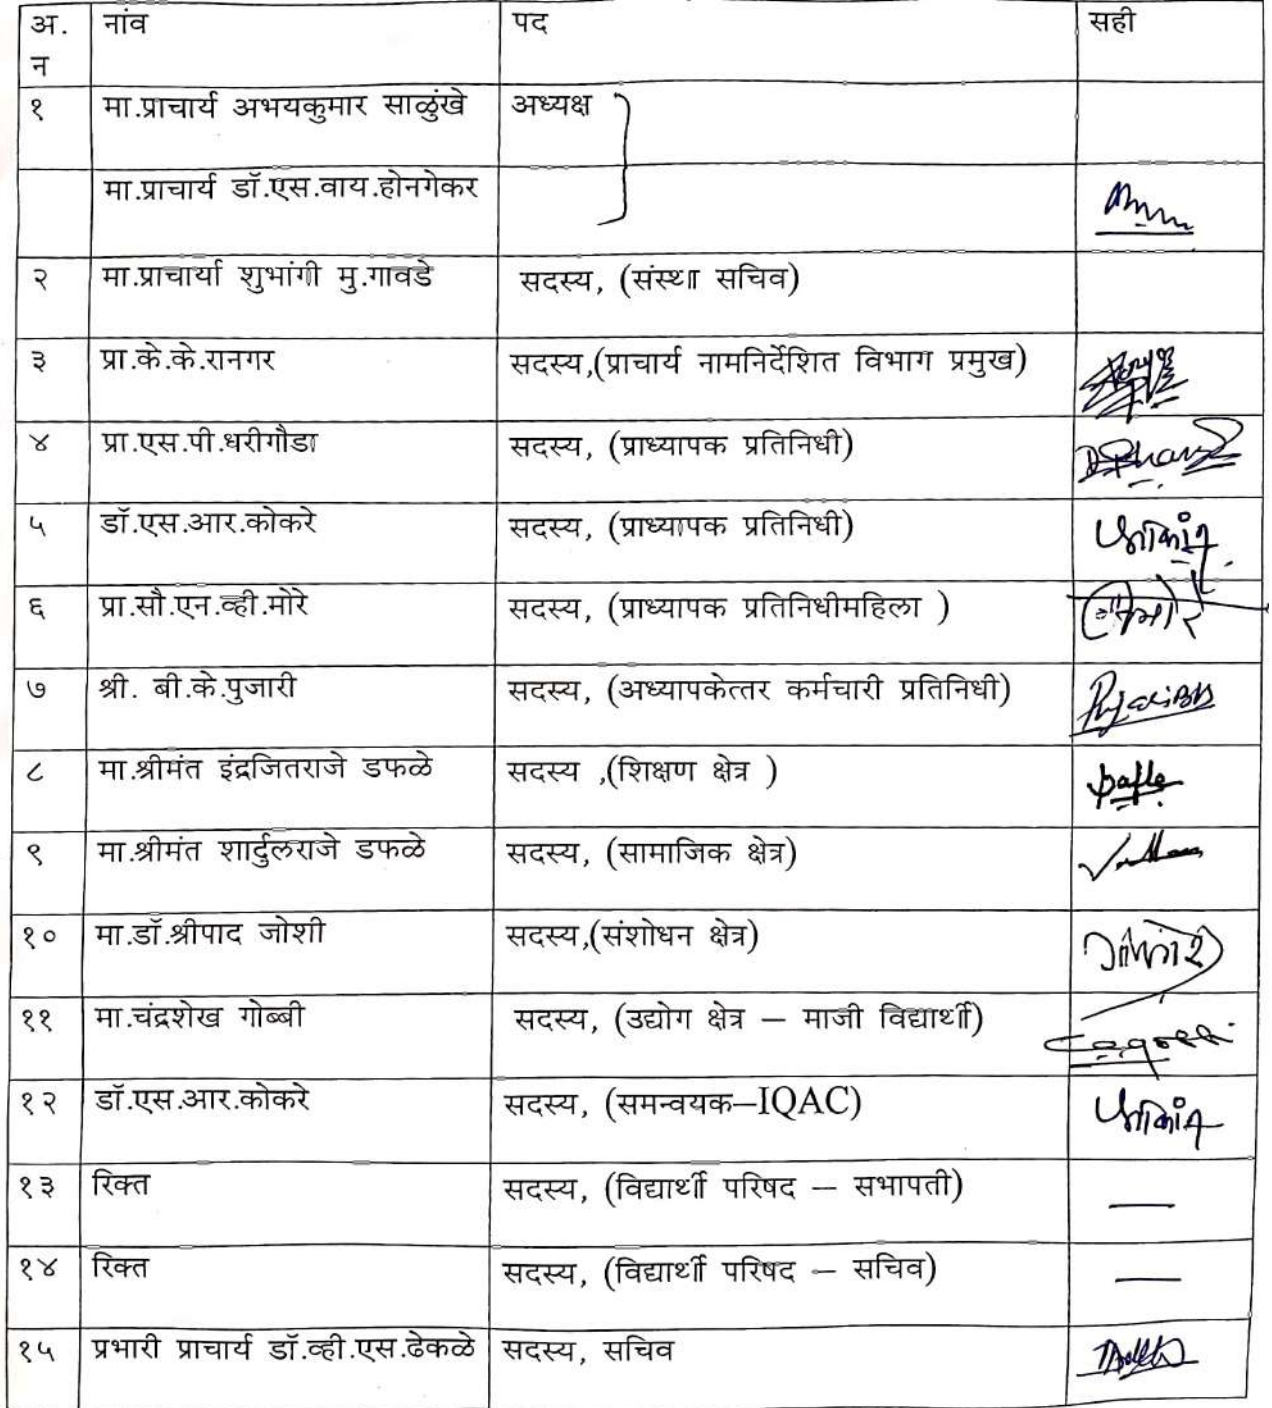 अ. नांव पद सही
न
१ मा.प्राचार्य अभयकुमार साळुंखे अध्यक्ष
मा.प्राचार्य डॉ.एस.वाय.होनगेकर
२ मा.प्राचार्या शुभांगी मु.गावडे सदस्य, (संस्था सचिव)
३ प्रा.के.के.रानगर सदस्य,(प्राचार्य नामनिर्देशित विभाग प्रमुख)
४ प्रा.एस.पी.धरीगौडा सदस्य, (प्राध्यापक प्रतिनिधी)
५ डॉ.एस.आर.कोकरे सदस्य, (प्राध्यापक प्रतिनिधी)
६ प्रा.सौ.एन.व्ही.मोरे सदस्य, (प्राध्यापक प्रतिनिधीमहिला )
७ श्री. बी.के.पुजारी सदस्य, (अध्यापकेत्तर कर्मचारी प्रतिनिधी)
८ मा.श्रीमंत इंद्रजितराजे डफळे सदस्य ,(शिक्षण क्षेत्र )
९ मा.श्रीमंत शार्दुलराजे डफळे सदस्य, (सामाजिक क्षेत्र)
१० मा.डॉ.श्रीपाद जोशी सदस्य,(संशोधन क्षेत्र)
११ मा.चंद्रशेख गोब्बी सदस्य, (उद्योग क्षेत्र – माजी विद्यार्थी)
१२ डॉ.एस.आर.कोकरे सदस्य, (समन्वयक–IQAC)
१३ रिक्त सदस्य, (विद्यार्थी परिषद – सभापती) —
१४ रिक्त सदस्य, (विद्यार्थी परिषद – सचिव) —
१५ प्रभारी प्राचार्य डॉ.व्ही.एस.ढेकळे सदस्य, सचिव